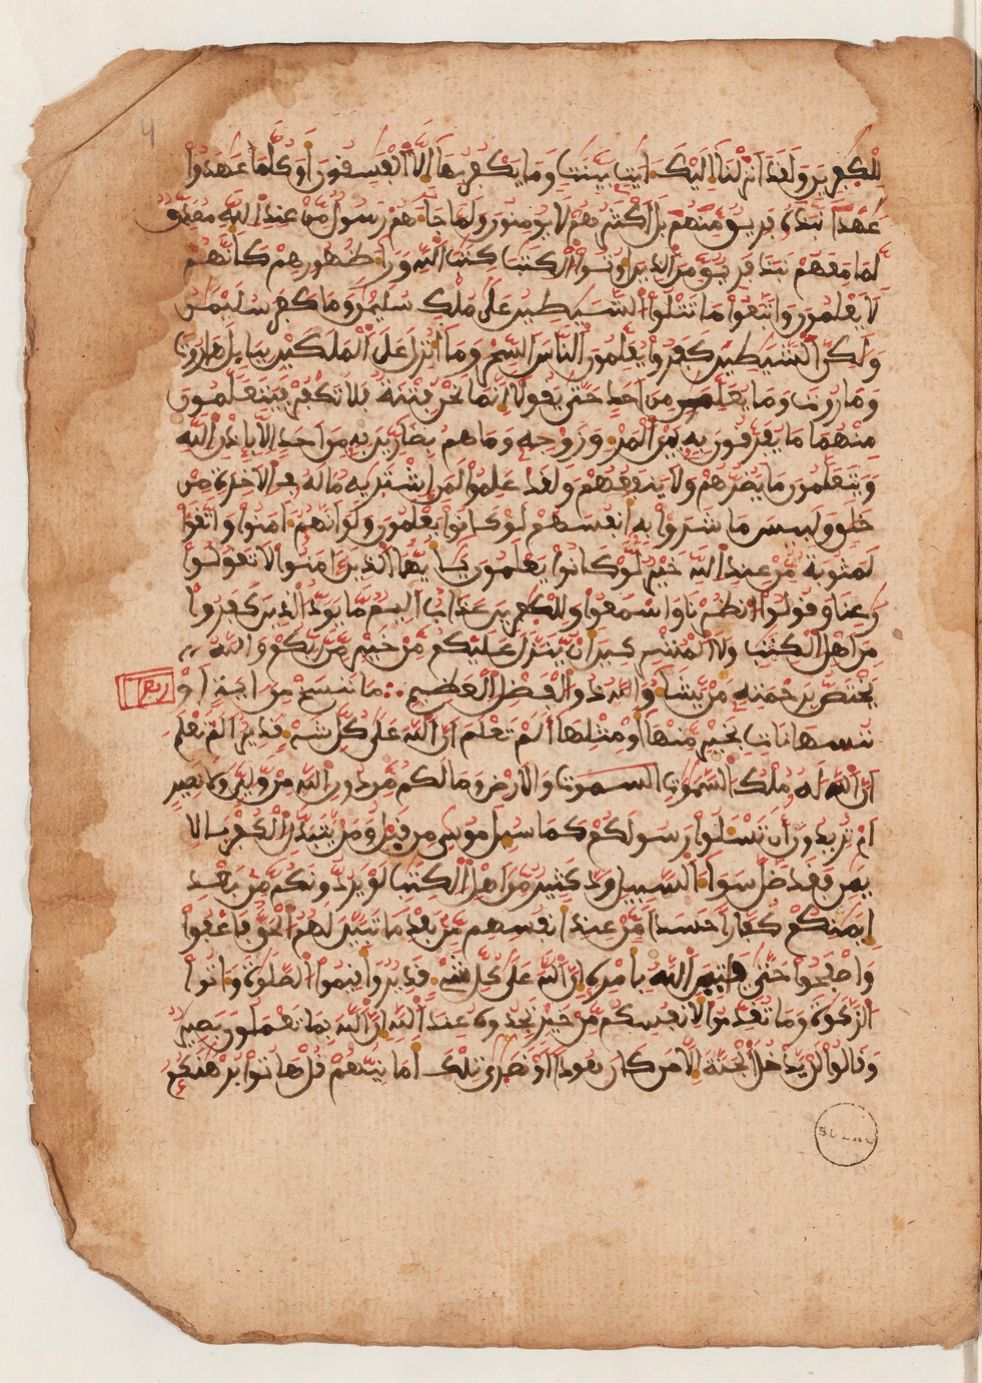 للكفرين ولقد انزلنا اليك ايت بينت وما يكفر بها الا الفسقون اوكلما عهدوا
عهدا نبذه فريق منهم بل اكثرهم لا يومنون ولما جاهم رسول من عند الله مصدق
لما معهم نبذ فريق من الذين اوتوا الكتب كتب الله ورا ظهورهم كانهم
لا يعلمون واتبعوا ما تتلوا الشيطين على ملك سليمن وما كفر سليمن
ولكن الشيطين كفروا يعلمون الناس السحر وما انزل على الملكين ببابل هاروت
وماروت وما يعلمن من احد حتى يقولا انما نحن فتنة فلا تكفر فيتعلمون
منهما ما يفرقون به بين المرء وزوجه وما هم بضارين به من احد الا باذن الله
ويتعلمون ما يضرهم ولا ينفعهم ولقد علموا لمن اشتريه ما له في الاخرة من
خلق ولبيس ما شروا به انفسهم لو كانوا يعلمون ولو انهم امنوا واتقوا
لمثوبة من عند الله خير لو كانوا يعلمون يايها الذين امنوا لا تقولوا
رعنا وقولوا انظرنا واسمعوا وللكفرين عذاب اليم ما يود الذين كفروا
من اهل الكتب ولا المشركين ان ينزل عليكم من خير من ربكم والله
يختص برحمته من يشا والله ذو الفضل العظيم ما ننسخ من اية او
ربع
ننسها نات بخير منها او مثلها الم تعلم ان الله على كل شيء قدير الم تعلم
ان الله له ملك السموت السموت والارض وما لكم من دون الله من ولي ولا نصير
ام تريدون ان تسلوا رسولكم كما سيل موسى من قبل ومن يتبدل الكفر بالا
يمن فقد ضل سوا السبيل ود كثير من اهل الكتب لو يردونكم من بعد
ايمنكم كفارا حسدا من عند انفسهم من بعد ما تبين لهم الحق فاعفوا
واصفحوا حتى ياتي الله بامره ان الله على كل شيء قدير واقيموا الصلوة واتوا
الزكوة وما تقدموا لانفسكم من خير تجدوه عند الله ان الله بما تعملون بصير
وقالوا لن يدخل الجنة الا من كان هودا او نصرى تلك امانيهم قل هاتوا برهنكم